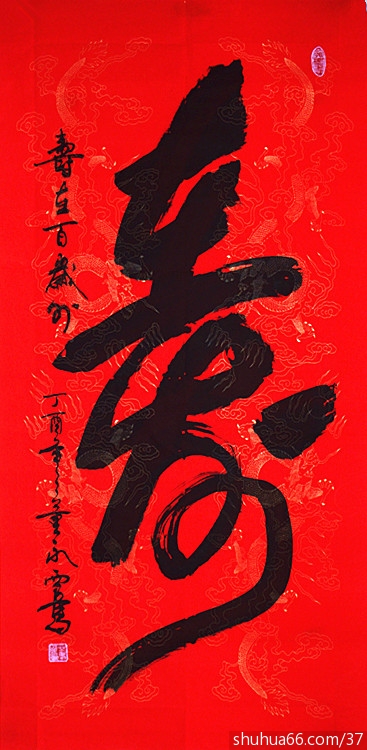 寿
壽在百歲外
丁酉
shuhua66.com/37